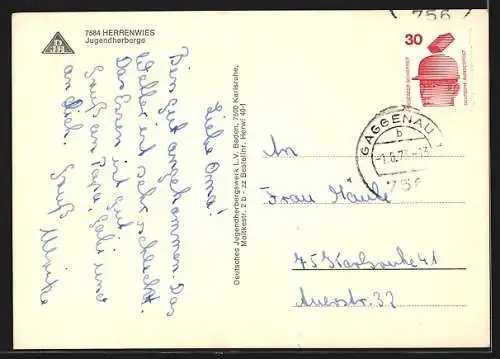 7584 HERRENWIES
Jugendherberge
Liebe Oma!
Bin gut angekommen. Das
Wetter ist sehr schlecht.
Das Essen ist gut.
Gruß an Papa, Gabi und
an Dich. Gruß
Ulrike
Deutsches Jugendherbergswerk L.V. Baden, 7500 Karlsruhe,
Moltkestr. 2 b - zz Bestellnr. Herwi 40-1
756
30
DEUTSCHE BUNDESPOST
GAGGENAU
b
756
An
Frau
75 Karlsruhe 41
Auerstr. 32